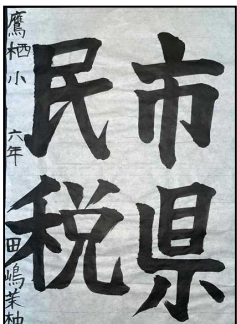 市県
民税
鷹栖小 六年 田嶋茉柚